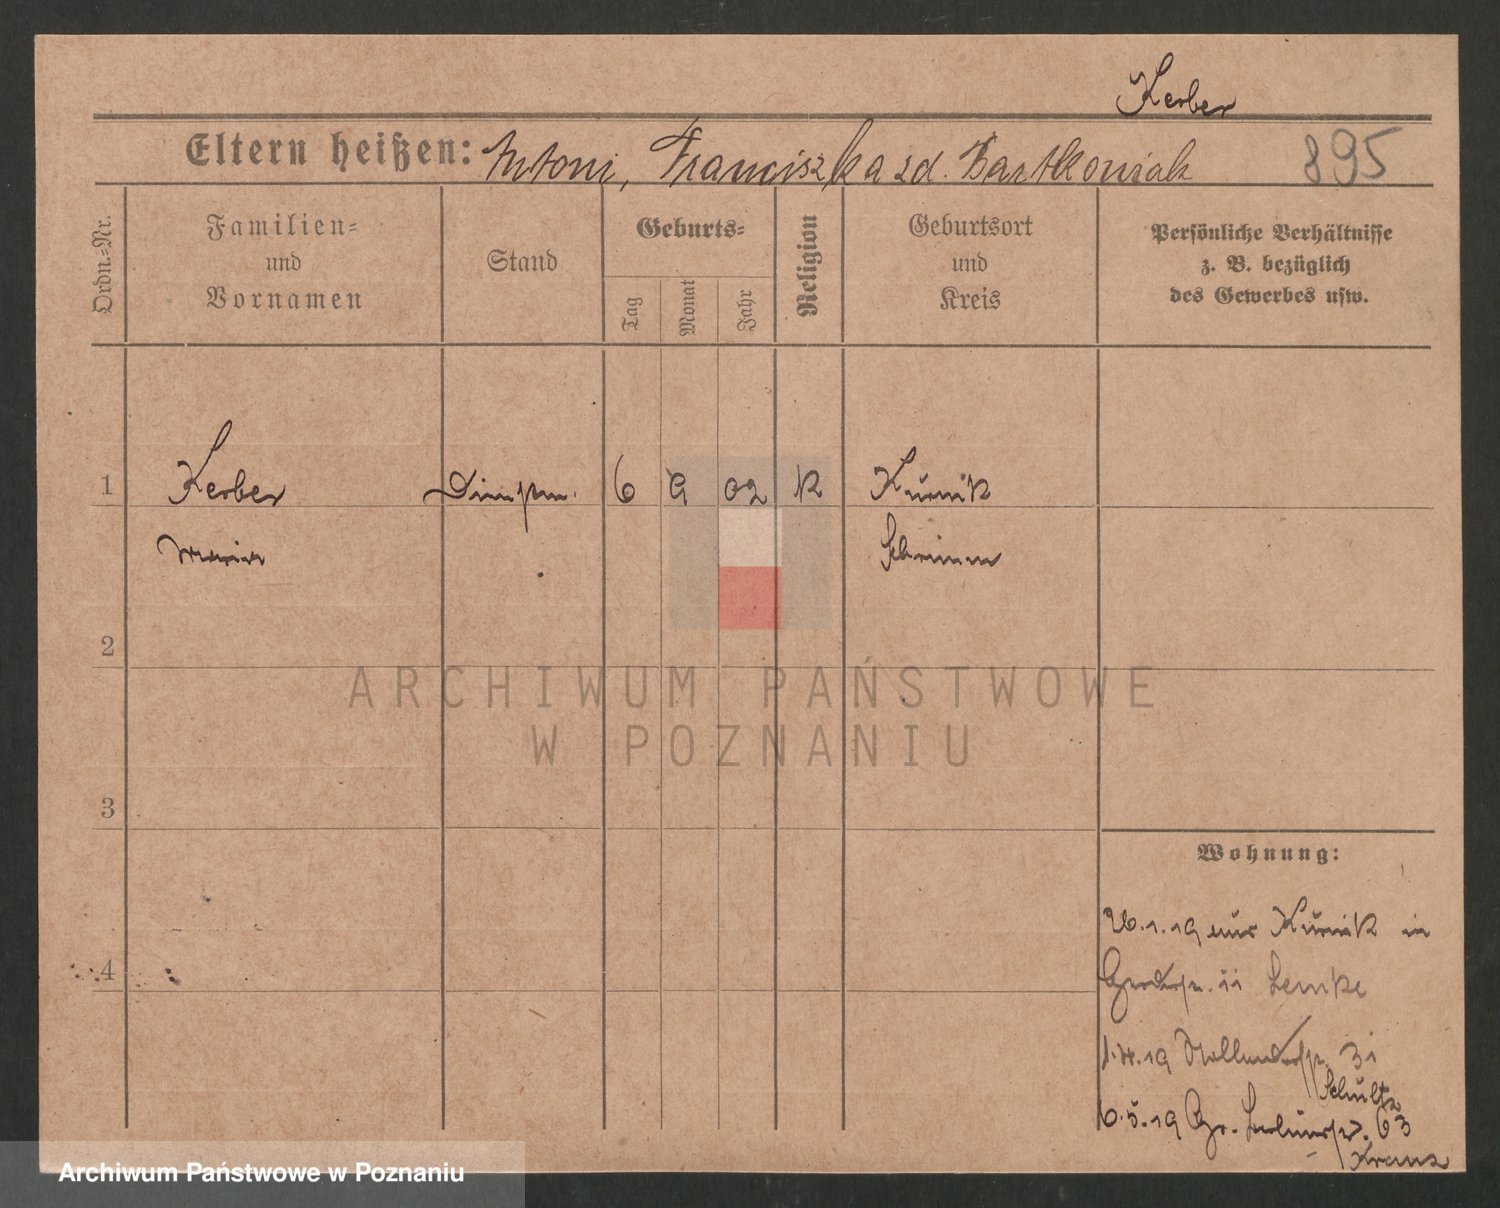 Kerber
Eltern heißen: Antoni, Franciszka zd. Bartkowiak 895
Ordn.=Nr.
Familien=
und
Vornamen
Stand
Geburts=
Tag
Monat
Jahr
Religion
Geburtsort
und
Kreis
Persönliche Verhältnisse
z. B. bezüglich
des Gewerbes usw.
1 Kerber Dienstm. 6 9 02 K Kurnik
Maria Schrimm
2
3
4
ARCHIWUM PAŃSTWOWE
W POZNANIU
Wohnung:
26.1.19 aus Kurnik in
11 Lemke
1.4.19 31
Schultz
6.5.19 Gr. 63
Kranz
Archiwum Państwowe w Poznaniu